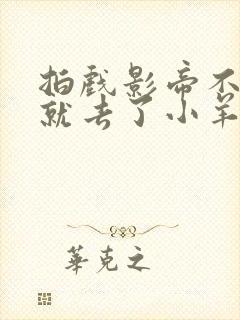 拍戏影帝不
就去了小羊
華克之